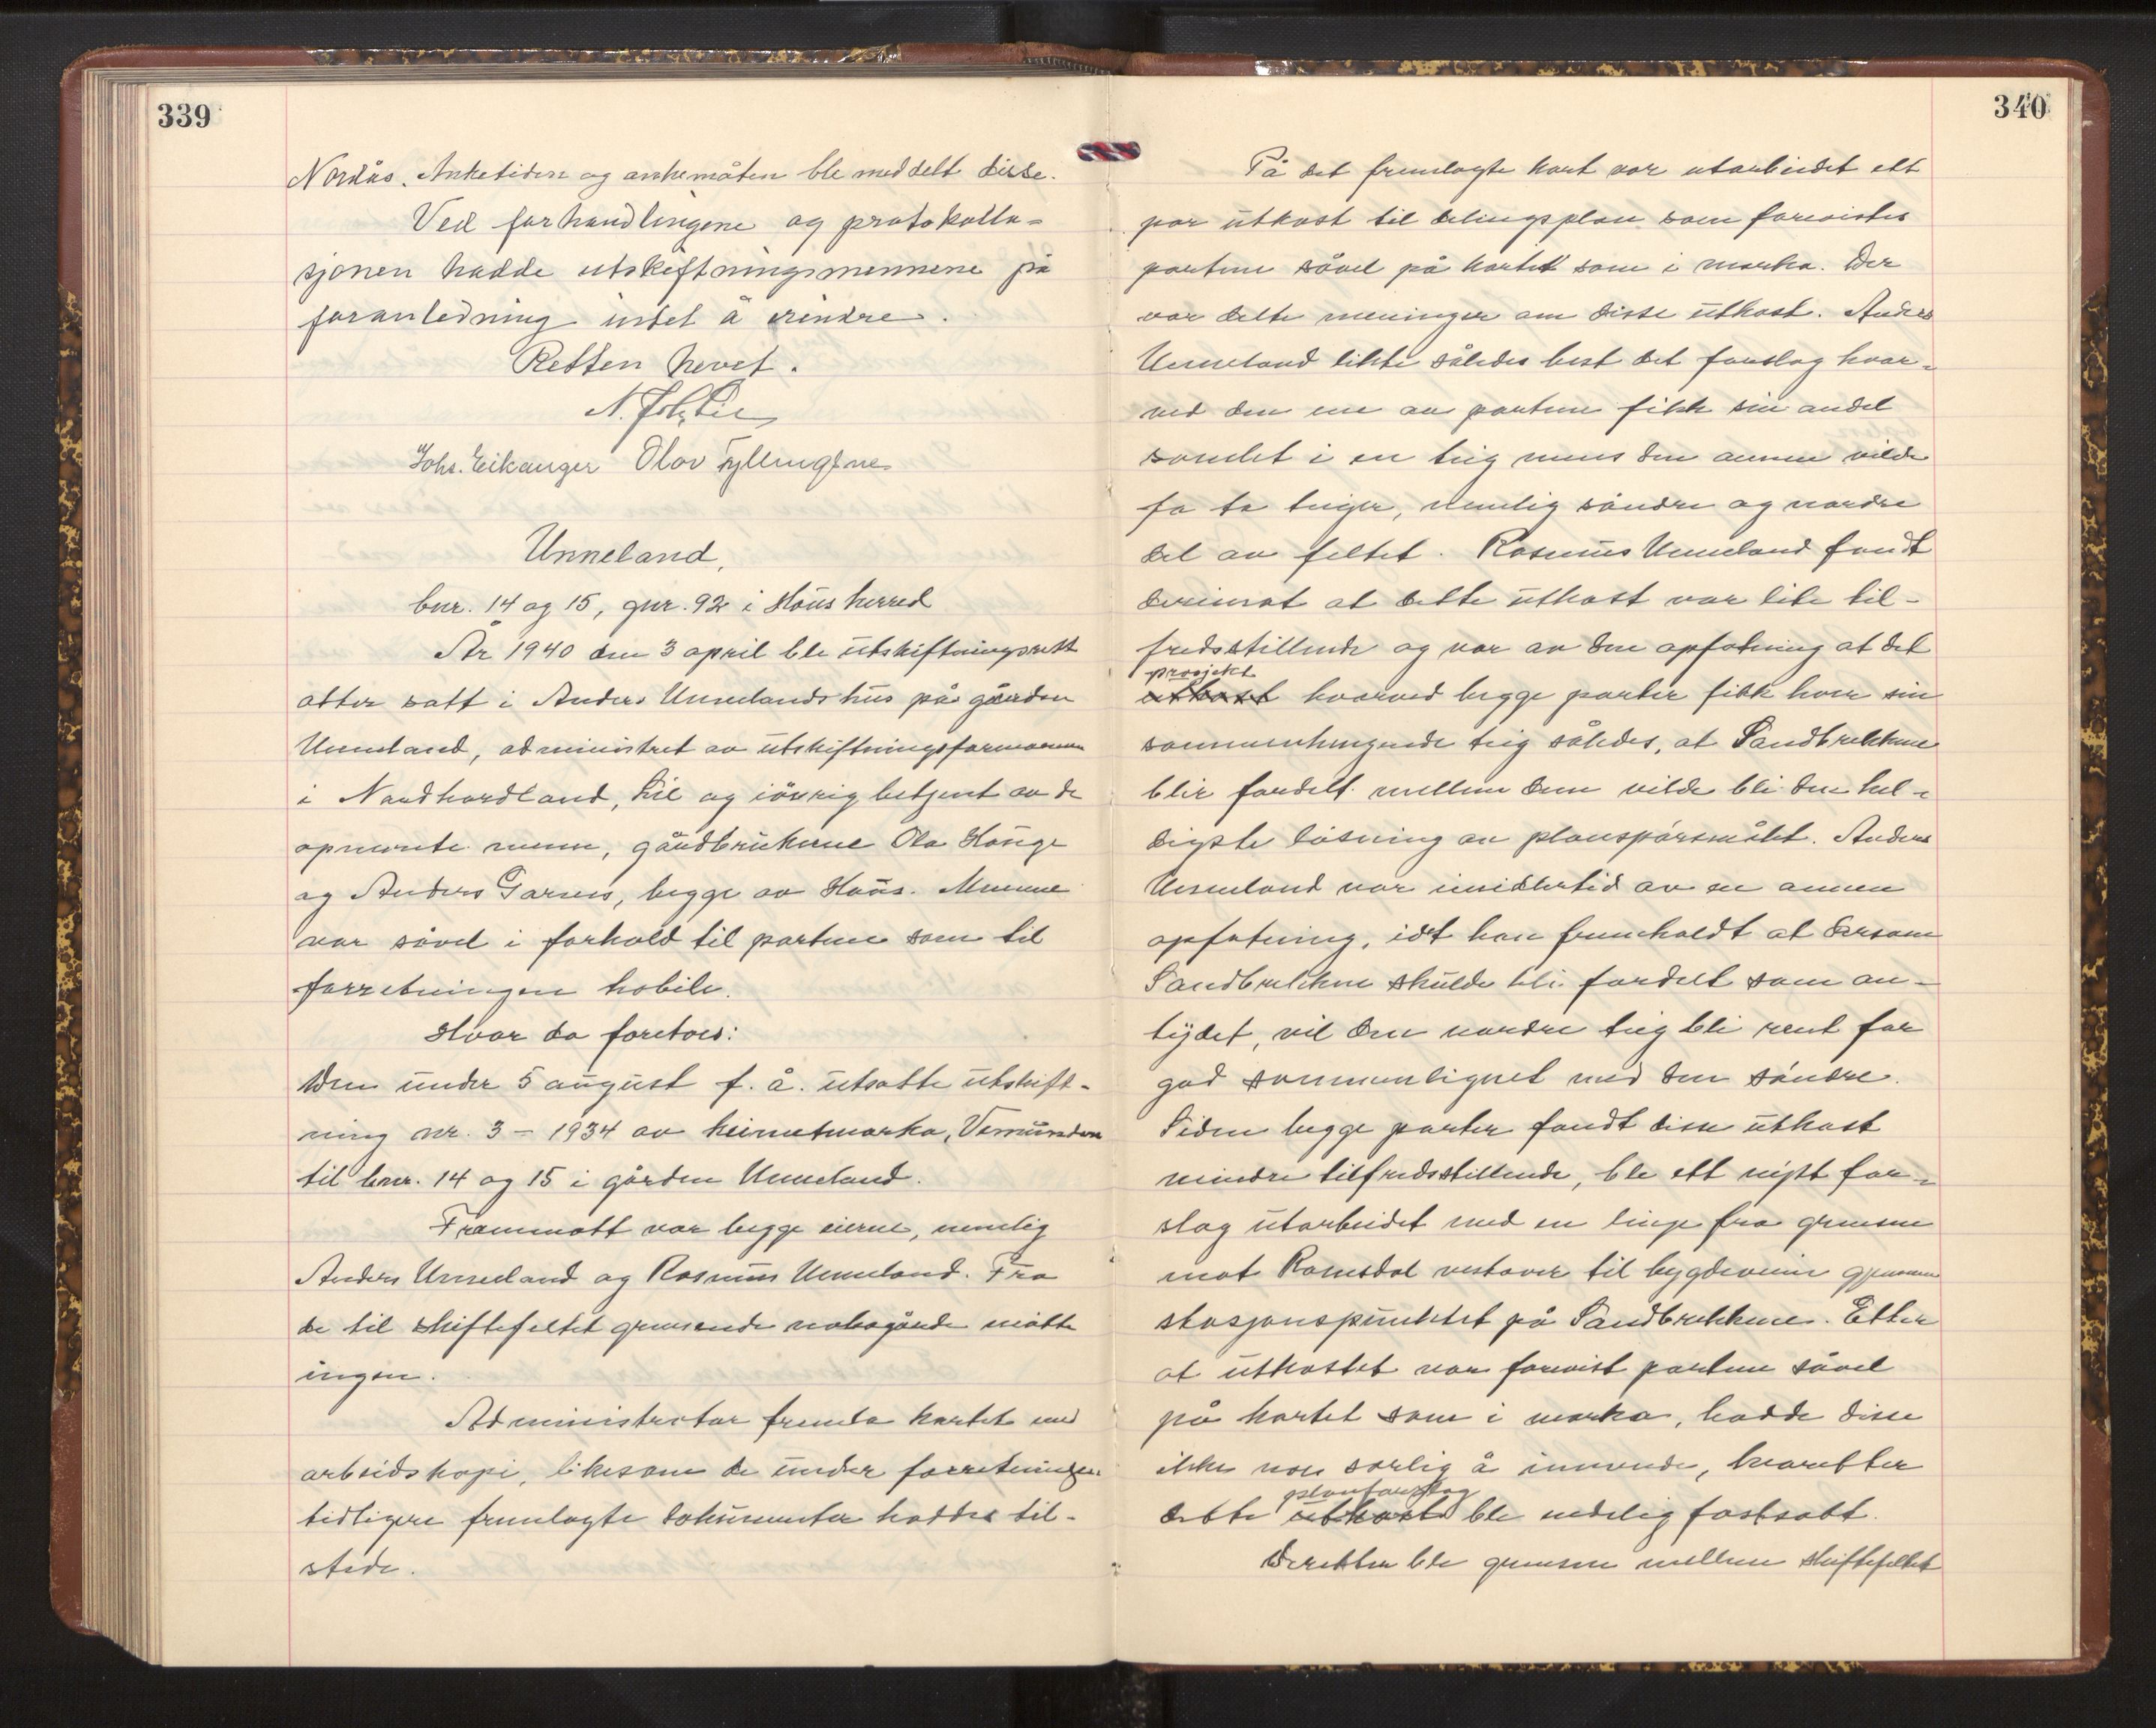 339
Nordås. Anketiden og ankemåten ble meddelt disse.
Ved forhandlingene og protokolla-
sjonen hadde utskiftningsmennene på
foranledning intet å erindre.
Retten hevet.
Johs. Eikanger Olav Fyllingsnes
Unneland,
bnr. 14 og 15, gnr. 92 i Haus herred
År 1940 den 3 april ble utskiftningsrett
atter satt i Anders Unnelands hus på gården
Unneland, administrert av utskiftningsformannen
i Nordhordland, Lie og iövrig betjent av de
opnevnte menn, gårdbrukerne Ola Hauge
og Anders Garnes, begge av Haus. Mennene
var såvel i forhold til partene som til
forretningen habile.
Hvor da foretoes:
Den under 5 august f. å. utsatte utskift-
ning nr. 3 - 1934 av heimemarka,
til bnr. 14 og 15 i gården Unneland.
Frammött var begge eierne, nemlig
Anders Unneland og Rasmus Unneland. Fra
de til skiftefeltet grensende nabogårde mötte
ingen.
Administrator fremla kartet med
arbeidskopi, likesom de under forretningen
tidligere fremlagte dokumenter haddes til-
stede.
340
På det fremlagte kart var utarbeidet ett
par utkast til delingsplan som forevistes
partene såvel på kartet som i marka. Der
var delte meninger om disse utkast. Anders
Unneland likte således best det forslag hvor-
ved den ene av partene fikk sin andel
samlet i en teig mens den annen vilde
få to teiger, nemlig söndre og nordre
del av feltet. Rasmus Unneland fandt
derimot at dette utkast var lite til-
fredsstillende og var av den opfatning at det
prosjekt
utkast hvorved begge parter fikk hver sin
sammenhengende teig således, at Sandbrekkene
blir fordelt mellem dem vilde bli den hel-
digste lösning av planspörsmålet. Anders
Unneland var imidlertid av en annen
opfatning, idet han fremholdt at dersom
Sandbrekkene skulde bli fordelt som an-
tydet, vil den nordre teig bli rent for
god sammenlignet med den söndre.
Siden begge parter fandt disse utkast
mindre tilfredsstillende, ble ett nytt for-
slag utarbeidet med en linje fra grensen
mot Romsdal vestover til bygdeveien gjennem
stasjonspunktet på Sandbrekkene. Etter
at utkastet var forevist partene såvel
på kartet som i marka, hadde disse
ikke noe særlig å innvende, hvoretter
planforslag
dette utkast ble endelig fastsatt.
Deretter ble grensen mellem skiftefeltet